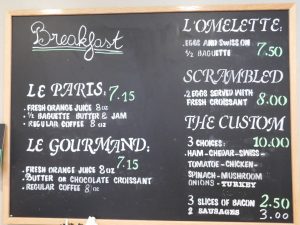 Breakfast
LE PARIS:
7.15
. FRESH ORANGE JUICE 8 oz
. ½ BAGUETTE BUTTER & JAM
. REGULAR COFFEE 8 oz
LE GOURMAND:
7.15
. FRESH ORANGE JUICE 8 oz
. BUTTER OR CHOCOLATE CROISSANT
. REGULAR COFFEE 8 oz
L'OMELETTE:
. EGGS AND SWISS ON
½ BAGUETTE 7.50
SCRAMBLED
. 2 EGGS SERVED WITH
FRESH CROISSANT 8.00
THE CUSTOM
3 CHOICES: 10.00
HAM - CHEDAR - SWISS -
TOMATOE - CHICKEN -
SPINACH - MUSHROOM
ONIONS - TURKEY
3 SLICES OF BACON 2.50
2 SAUSAGES 3.00